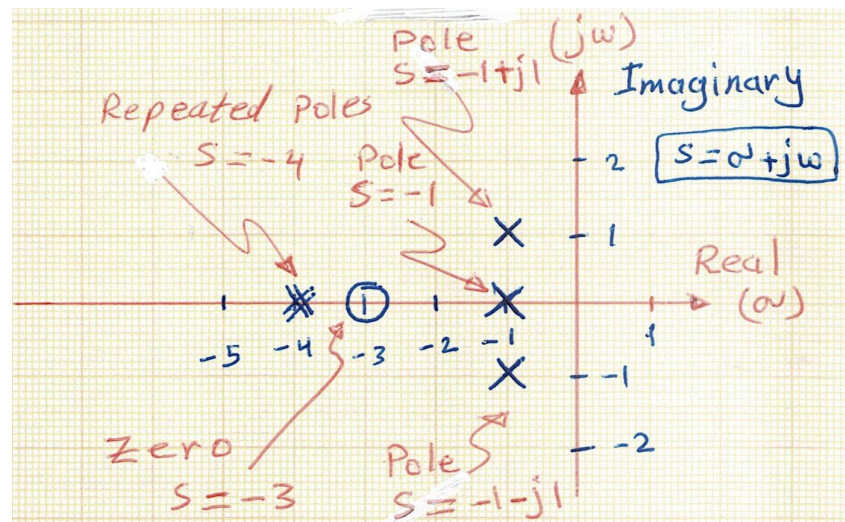 Pole
S=-1+j1
(jω)
Imaginary
S=σ+jω
Repeated Poles
S=-4
Pole
S=-1
2
1
Real
(σ)
-5
-4
-3
-2
-1
1
-1
-2
Zero
S=-3
Pole
S=-1-j1